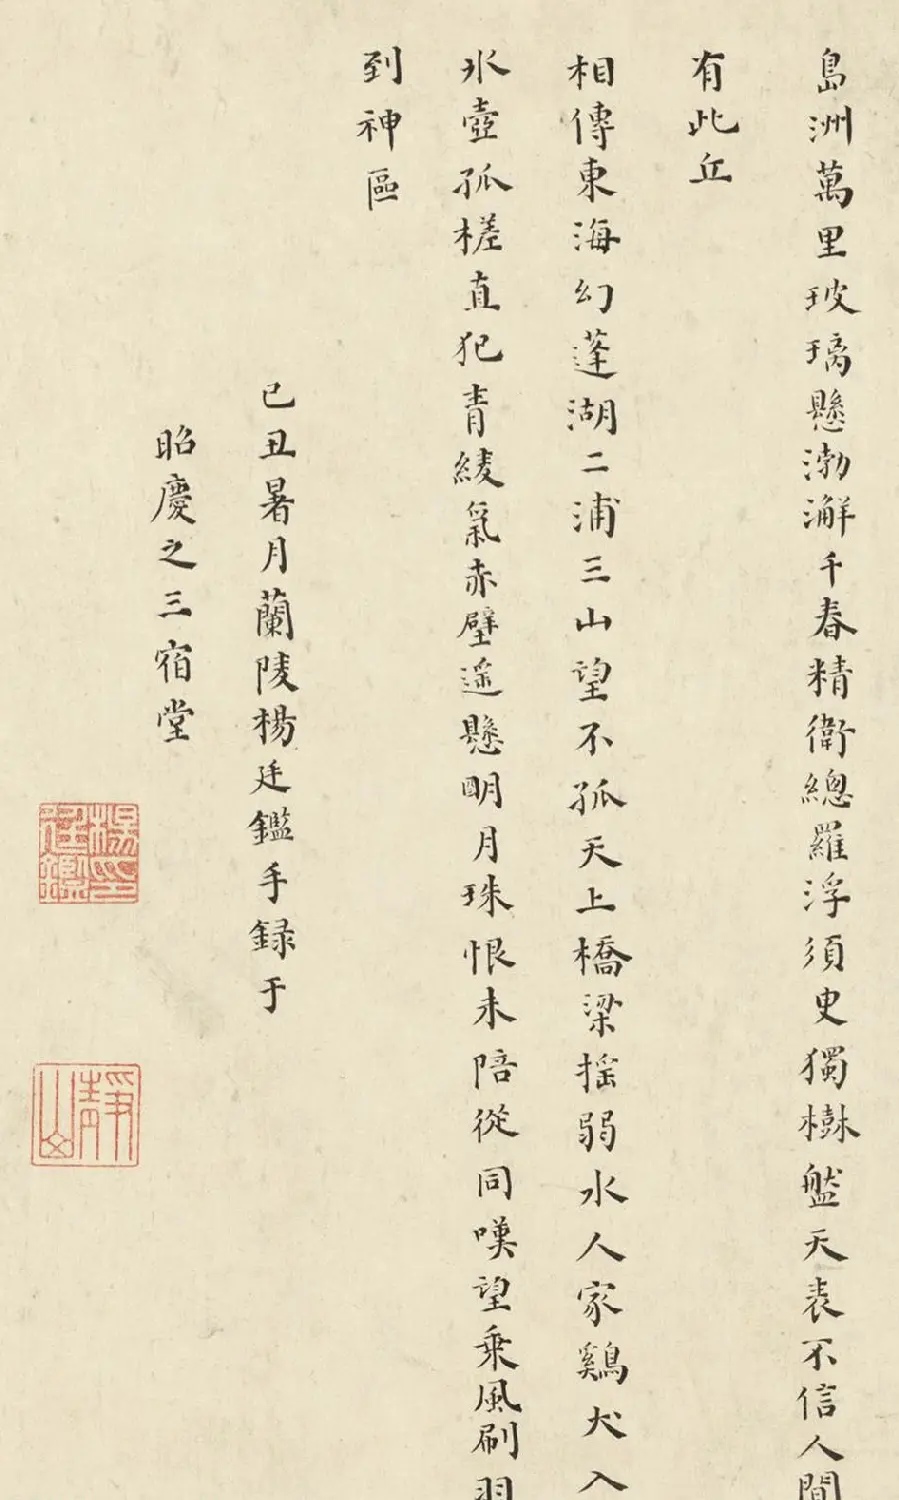 島洲萬里玻璃懸渤澥千春精衛總羅浮須臾獨樹盤天表不信人間
有此丘
相傳東海幻蓬湖二浦三山望不孤天上橋梁搖弱水人家鷄犬入
氷壺孤槎直犯青綾氣赤壁遥懸明月珠恨未陪從同嘆望乗風刷羽
到神區
己丑暑月蘭陵楊廷鑑手録于
昭慶之三宿堂
楊廷鑑印
靜山